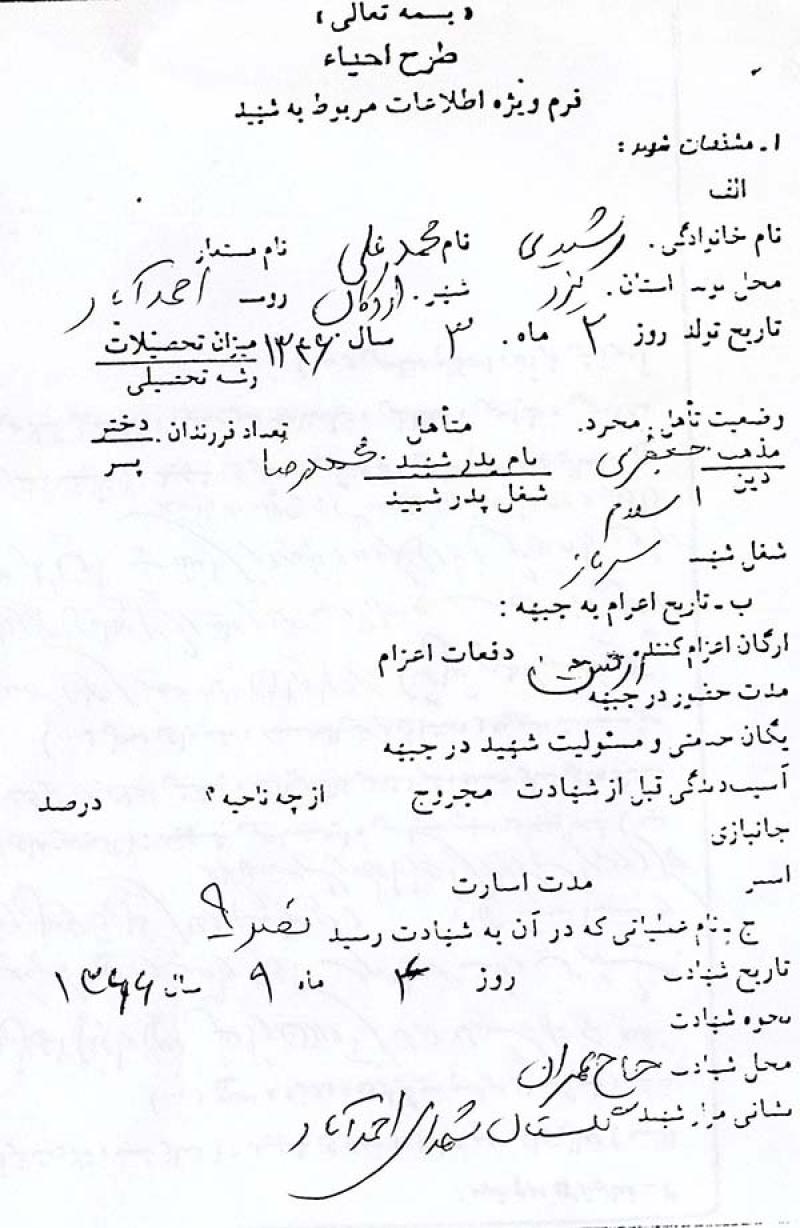 « بسمه تعالی »
طرح احیاء
فرم ویژه اطلاعات مربوط به شهید
۱ـ مشخصات شهید :
الف
نام خانوادگی. رشیدی نام محمد علی نام مستعار
محل تولد استان. یزد شهر. اردکان روستا احمدآباد
تاریخ تولد روز ۲ ماه. ۳ سال ۱۳۴۶ میزان تحصیلات
رشته تحصیلی
وضعیت تأهل. مجرد. متأهل تعداد فرزندان. دختر
پسر
مذهب جعفری نام پدر شهید. محمدرضا
دین اسلام شغل پدر شهید
شغل شهید سرباز
ب ـ تاریخ اعزام به جبهه :
ارگان اعزام کننده ارتش دفعات اعزام
مدت حضور در جبهه
یگان خدمتی و مسئولیت شهید در جبهه
آسیب دیدگی قبل از شهادت مجروح از چه ناحیه ؟ درصد
جانبازی
اسیر مدت اسارت
ج ـ نام عملیاتی که در آن به شهادت رسید نصر ۹
تاریخ شهادت روز ۴ ماه ۹ سال ۱۳۶۶
نحوه شهادت
محل شهادت حاج عمران
نشانی مزار شهید گلستان شهدای احمدآباد